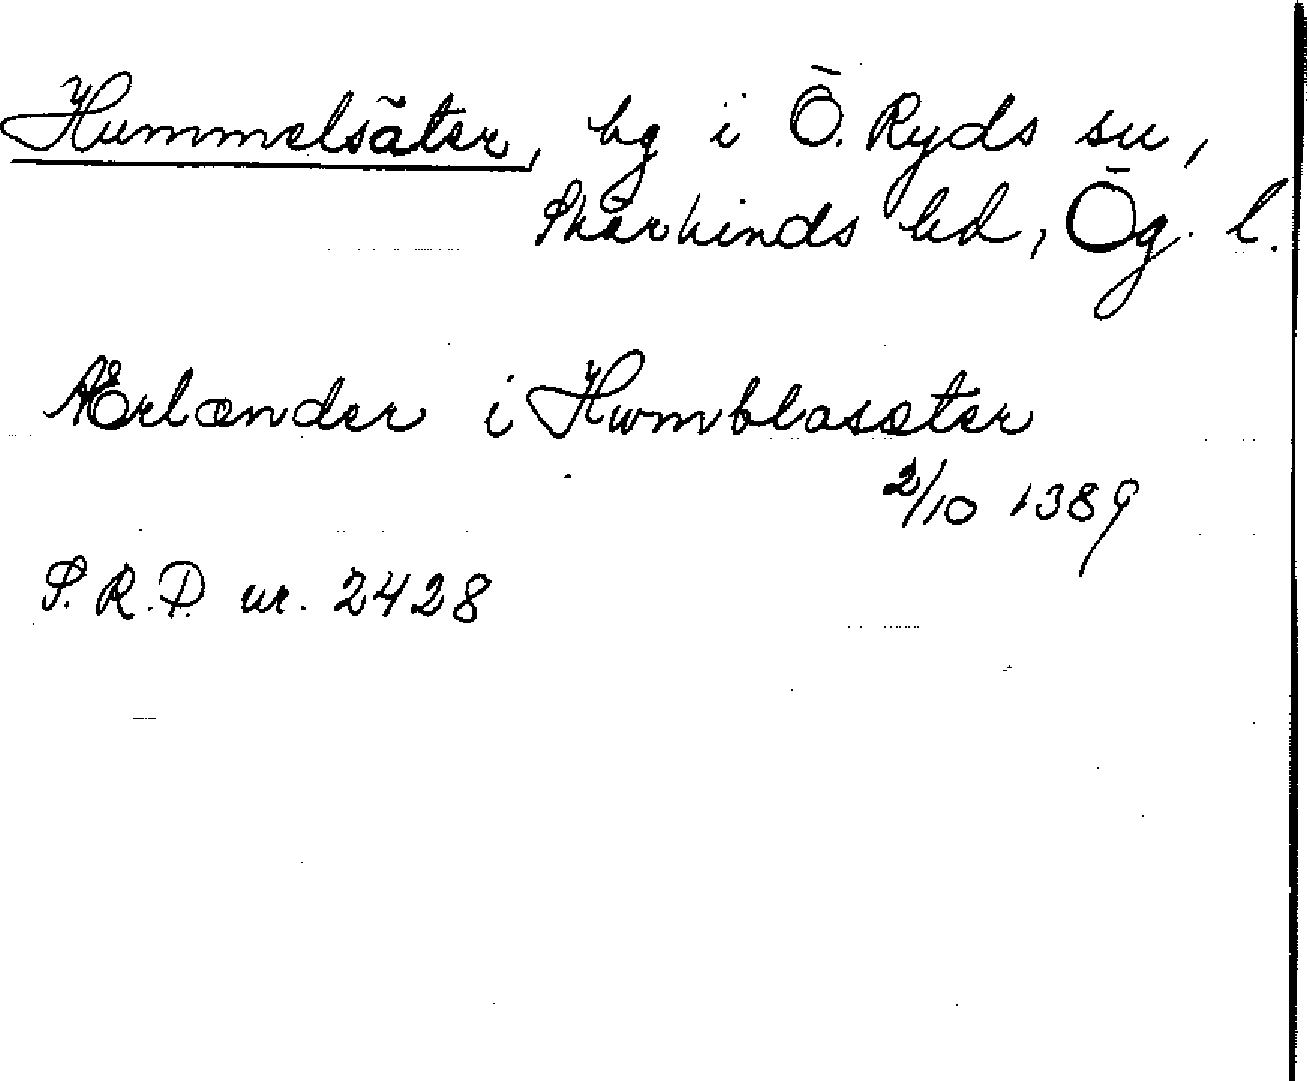 Hummelsäter, by i Ö. Ryds sn,
Skärkinds hd, Ög. l.
Ærlænder i Hwmblasæter
2/10 1389
S.R.P. nr. 2428